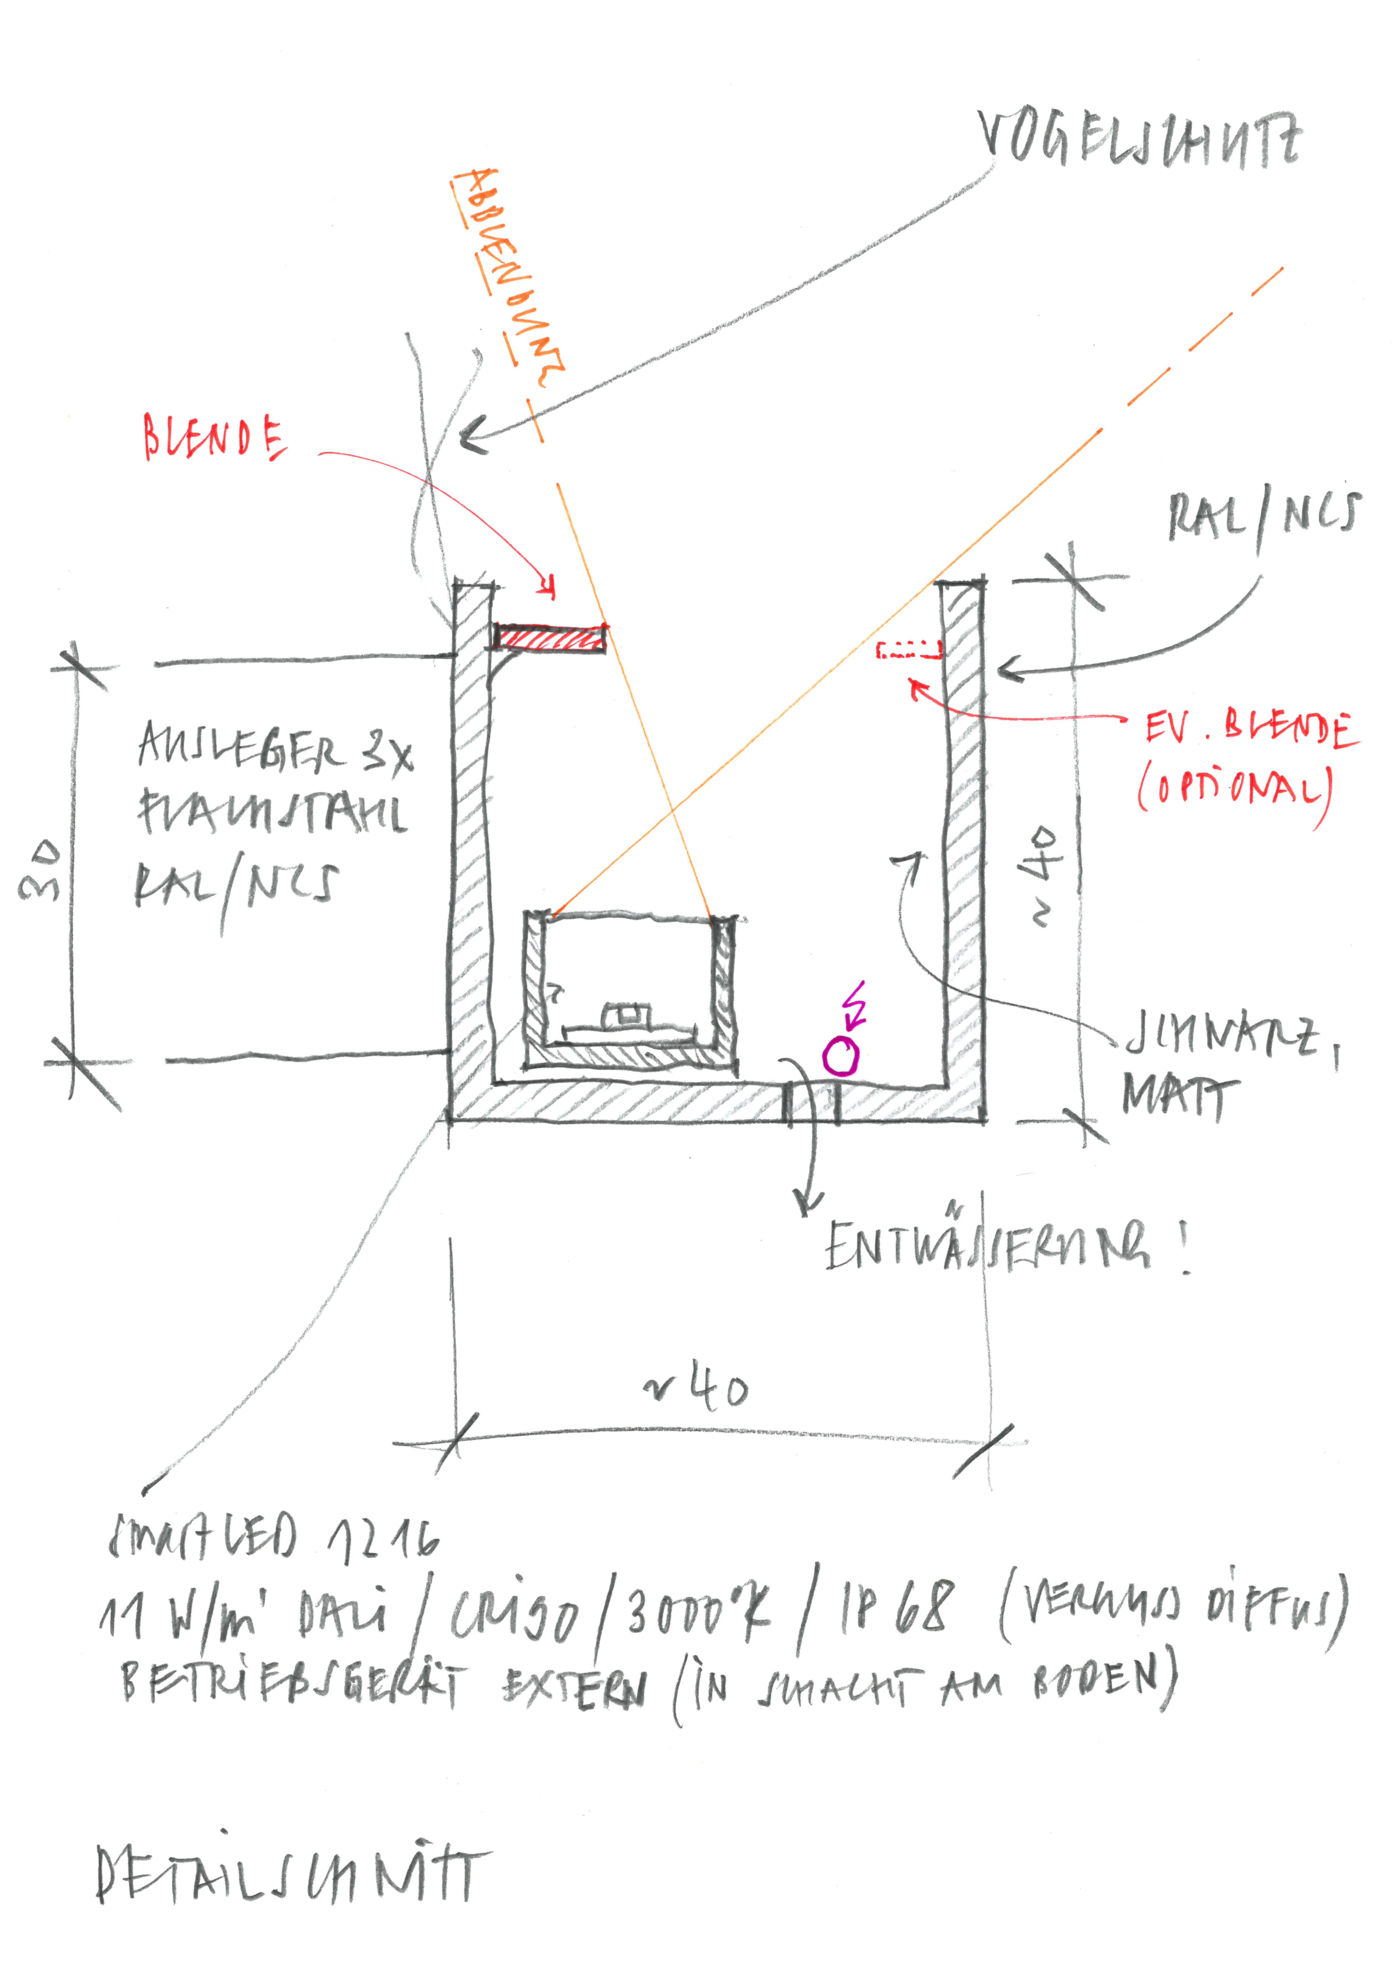 VOGELSCHUTZ
ABBLENDUNG
BLENDE
RAL/NCS
AUSLEGER 3X
FLACHSTAHL
RAL/NCS
30
EV. BLENDE
(OPTIONAL)
~ 40
SCHWARZ,
MATT
ENTWÄSSERUNG!
~ 40
SMARTLED 1216
11 W/m' DALI / CRI90 / 3000°K / IP 68 (VERGUSS DIFFUS)
BETRIEBSGERÄT EXTERN (IN SCHACHT AM BODEN)
DETAILSCHNITT